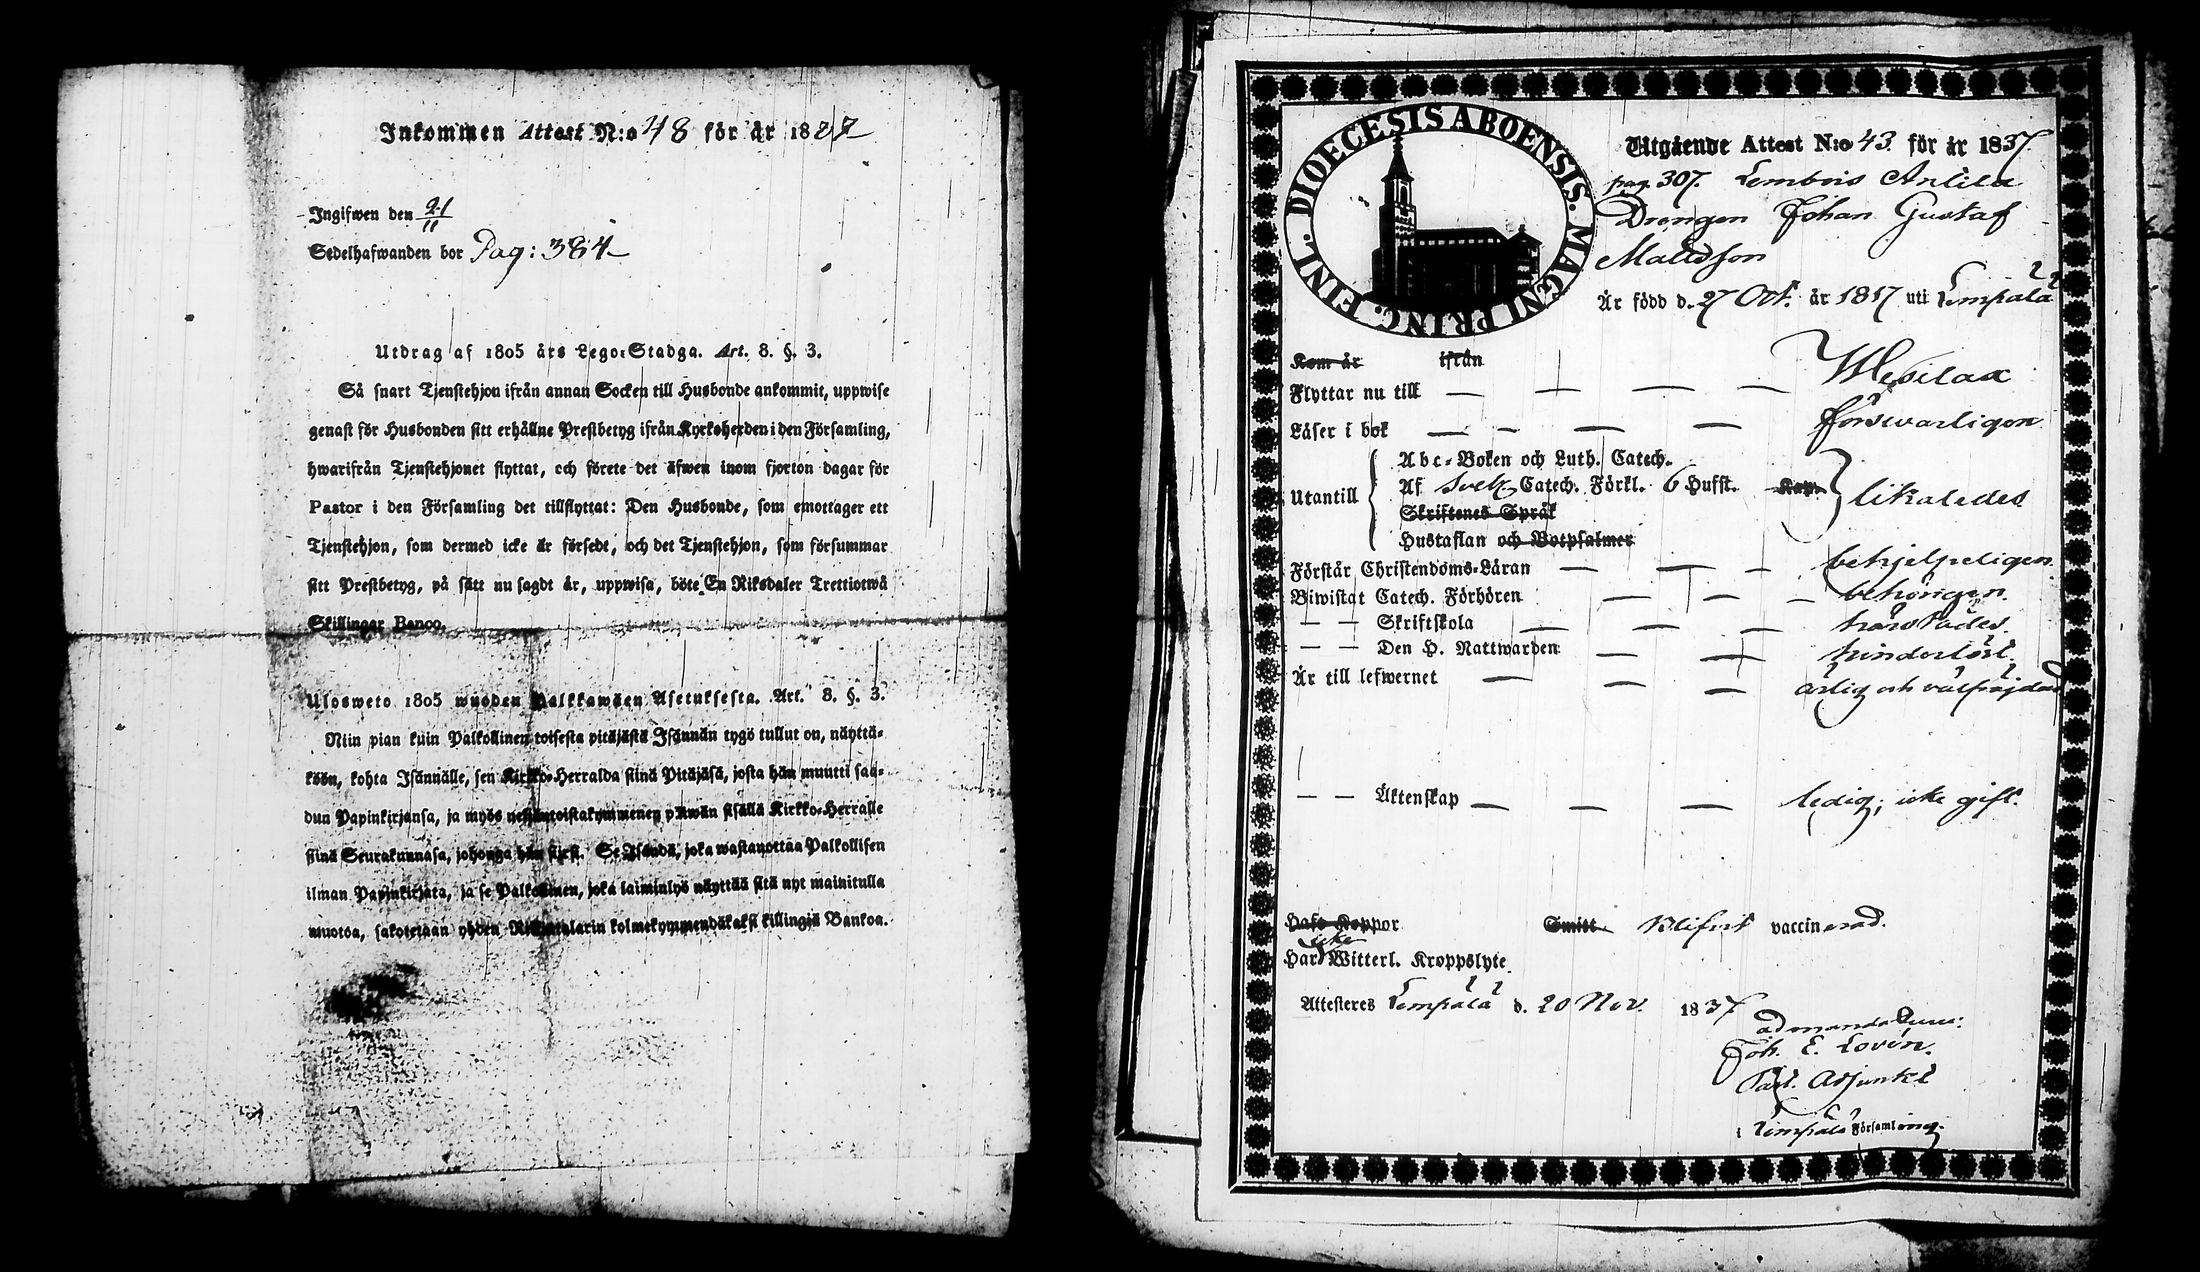 Inkommen Attest N:o 48 för år 1837
Ingifwen den 21/11
Sedelhafwanden bor Pag: 384
Utdrag af 1805 års Lego-Stadga. Art. 8. §. 3.
Så snart Tjenstehjon ifrån annan Socken till Husbonde ankommit, uppwise
genast för Husbonden sitt erhållne Prestbetyg ifrån Kyrkoherden i den Församling,
hwarifrån Tjenstehjonet flyttat, och förete det äfwen inom fjorton dagar för
Pastor i den Församling det tillflyttat: Den Husbonde, som emottager ett
Tjenstehjon, som dermed icke är försedt, och det Tjenstehjon, som försummar
sitt Prestbetyg, på sätt nu sagdt är, uppwisa, böte En Riksdaler Trettiotwå
Skillingar Banco.
Ulosweto 1805 wuoden Palkkawäen Asetuksesta. Art. 8. §. 3.
Niin pian kuin Palkollinen toisesta pitäjästä Isännän tygö tullut on, näyttä-
köön, kohta Isännälle, sen Kirkko-Herralda siinä Pitäjäsä, josta hän muutti saa-
dun Papinkirjansa, ja myös neljäntoistakymmenen päiwän sisällä Kirkko-Herralle
siinä Seurakunnasa, johonga hän siirsi. Se Isändä, joka wastanottaa Palkollisen
ilman Papinkirjata, ja se Palkollinen, joka laiminlyö näyttää sitä nyt mainitulla
muotoa, sakotetaan yhden Riksdalarin kolmekymmendäkaksi killingiä Bankoa.
DIOECESIS ABOENSIS. MAGNI PRINC. FINL.
Utgående Attest N:o 43 för år 1837
pag. 307. Lembois Anlila
Drengen Johan Gustaf
Mattsson
Är född d. 27 Oct. år 1817 uti Lempälä
Kom år ifrån
Flyttar nu till Wesilax
Läser i bok förswarligen
Abc-Boken och Luth. Catech.
Utantill Af Sveb. Catech. Förkl. 6 Hufst. Kap. likaledes
Skriftenes Språk
Hustaflan och Botpsalmer
Förstår Christendoms-Läran behjelpeligen
Biwistat Catech. Förhören behörigen
— — Skriftskola härstädes
— — Den H. Nattwarden hinderlöst
Är till lefwernet ärlig och välfräjdad
— — Äktenskap ledig, icke gift.
Haft Koppor Smitt. Blifvit vaccinerad.
icke
Har Witterl. Kroppslyte
Attesteras Lempälä d. 20 Nov. 1837
Joh. E. Lovén.
Past. Adjunkt
i Lempälä Församling.